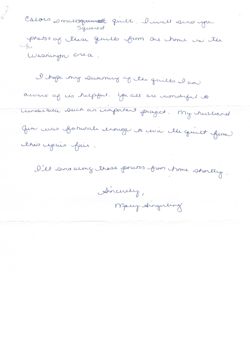 Colors small square quilt. I will send you
Squared
photos of these quilts from our home in the
Washington area.
I hope my summary of the quilts I am
aware of is helpful. You all are wonderful to
undertake such an important project. My husband
was fortunate enough to win the quilt from
this years fair.
I'll send along those photos from home shortly.
Sincerely,
Mary